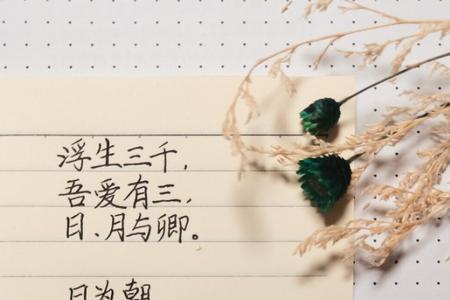 浮生三千,
吾爱有三,
日、月与卿。
日为朝